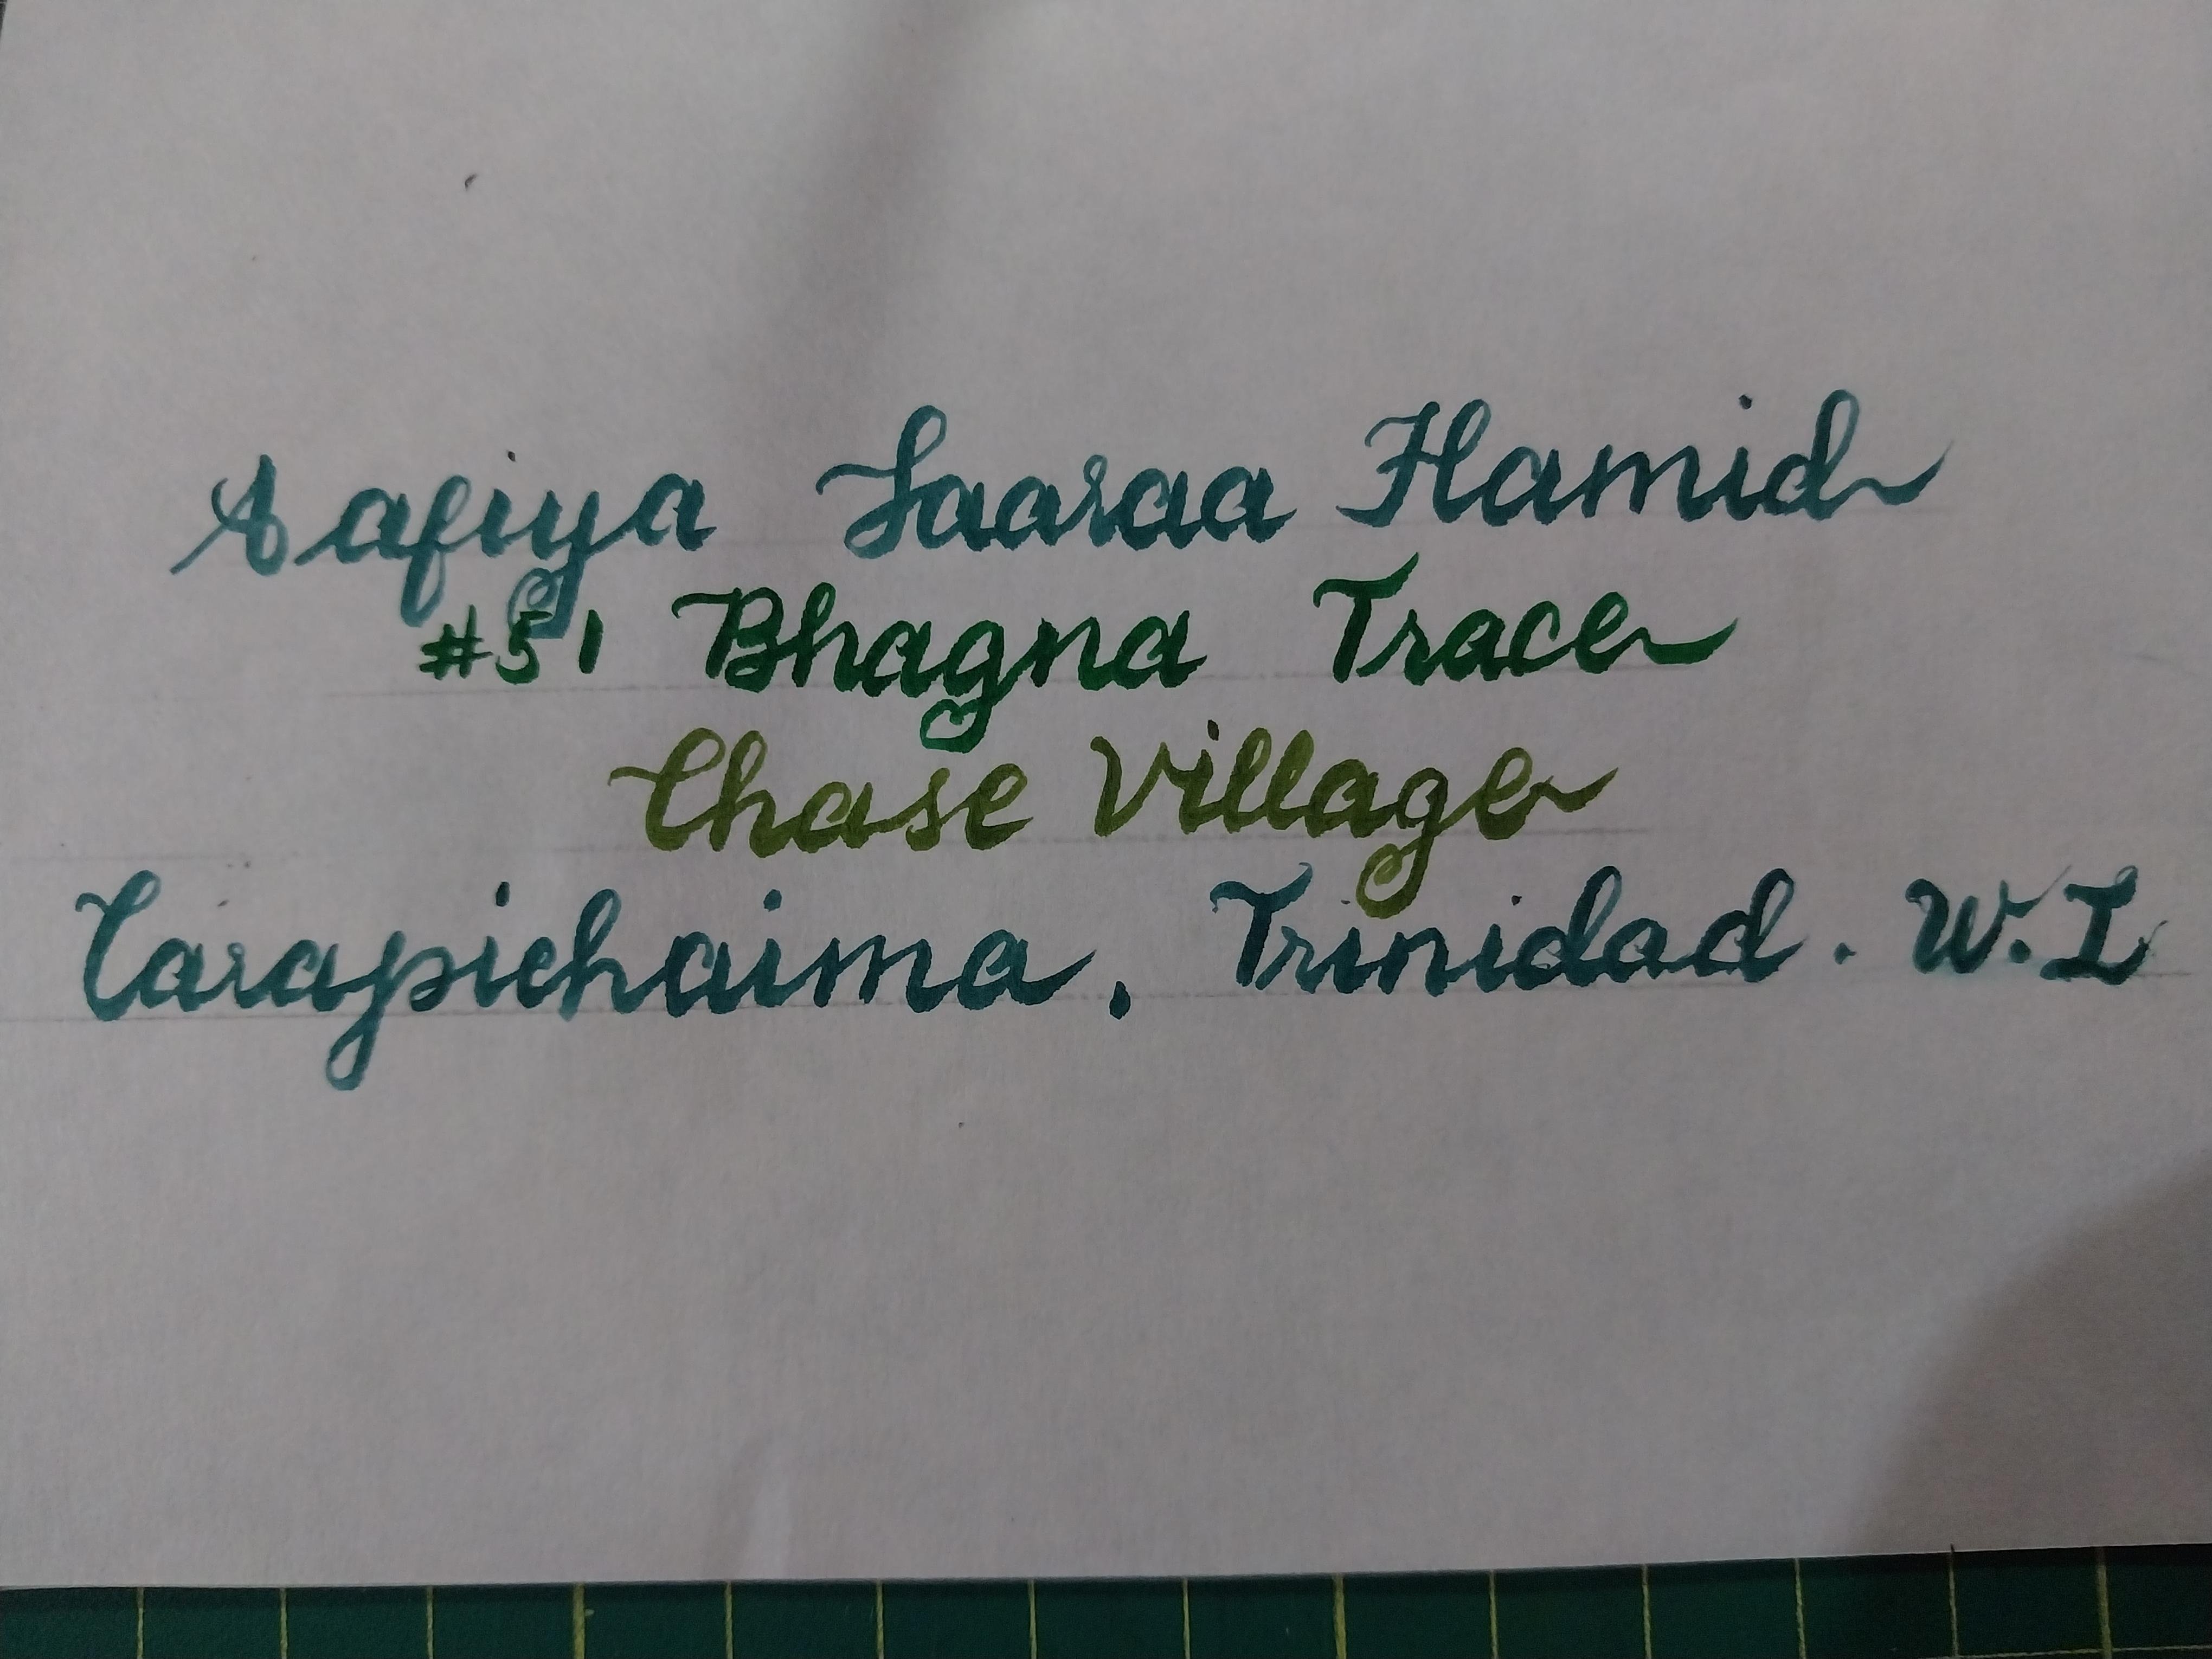 Safiya Saaraa Hamid
#51 Bhagna Trace
Chase Village
Carapichaima, Trinidad. W.I